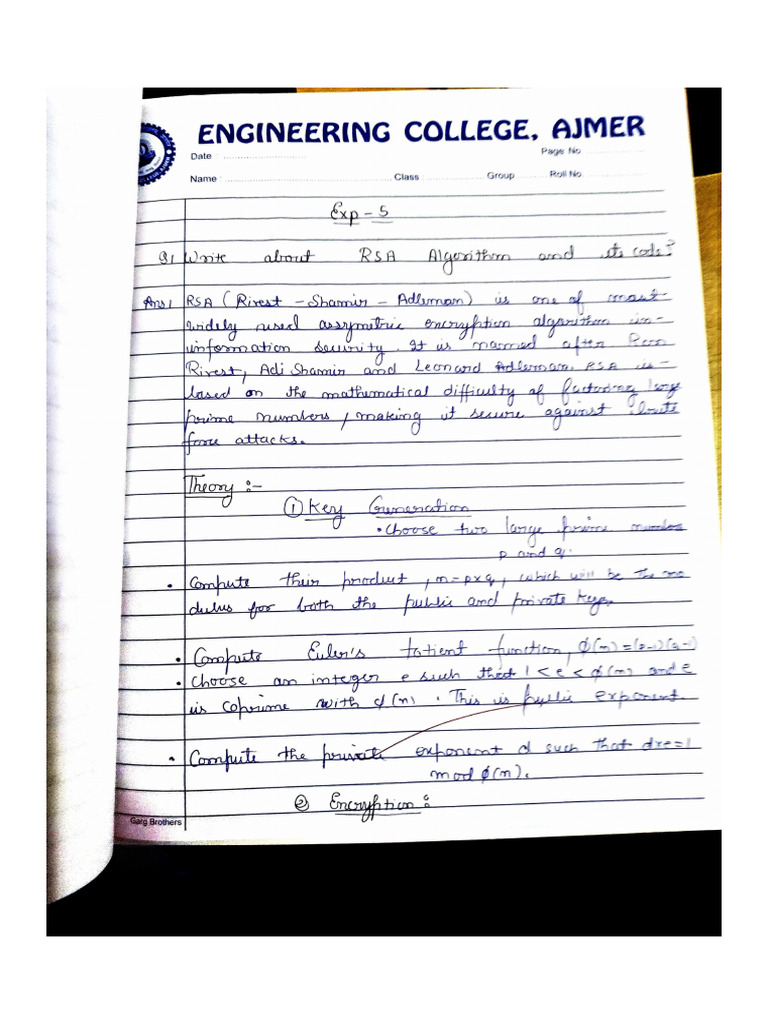 ENGINEERING COLLEGE, AJMER
Date : ............................ Page No ....................
Name : ............................ Class .................... Group ........... Roll No. ....................
Exp - 5
Q1 Write about RSA Algorithm and its code?
Ans1 RSA (Rivest - Shamir - Adleman) is one of most
widely used assymetric encryption algorithm in
information security. It is named after Ron
Rivest, Adi Shamir and Leonard Adleman. RSA is
based on the mathematical difficulty of factoring large
prime numbers, making it secure against brute
force attacks.
Theory :-
① Key Generation
• Choose two large prime numbers
p and q.
• Compute their product, n=pxq, which will be the mo
dulus for both the public and private keys.
• Compute Euler's totient function, ϕ(n)=
• Choose an integer e such that 1 < e < ϕ(n) and e
is coprime with ϕ(n). This is public exponent.
• Compute the private exponent d such that dxe=1
mod ϕ(n).
② Encryption :
Garg Brothers